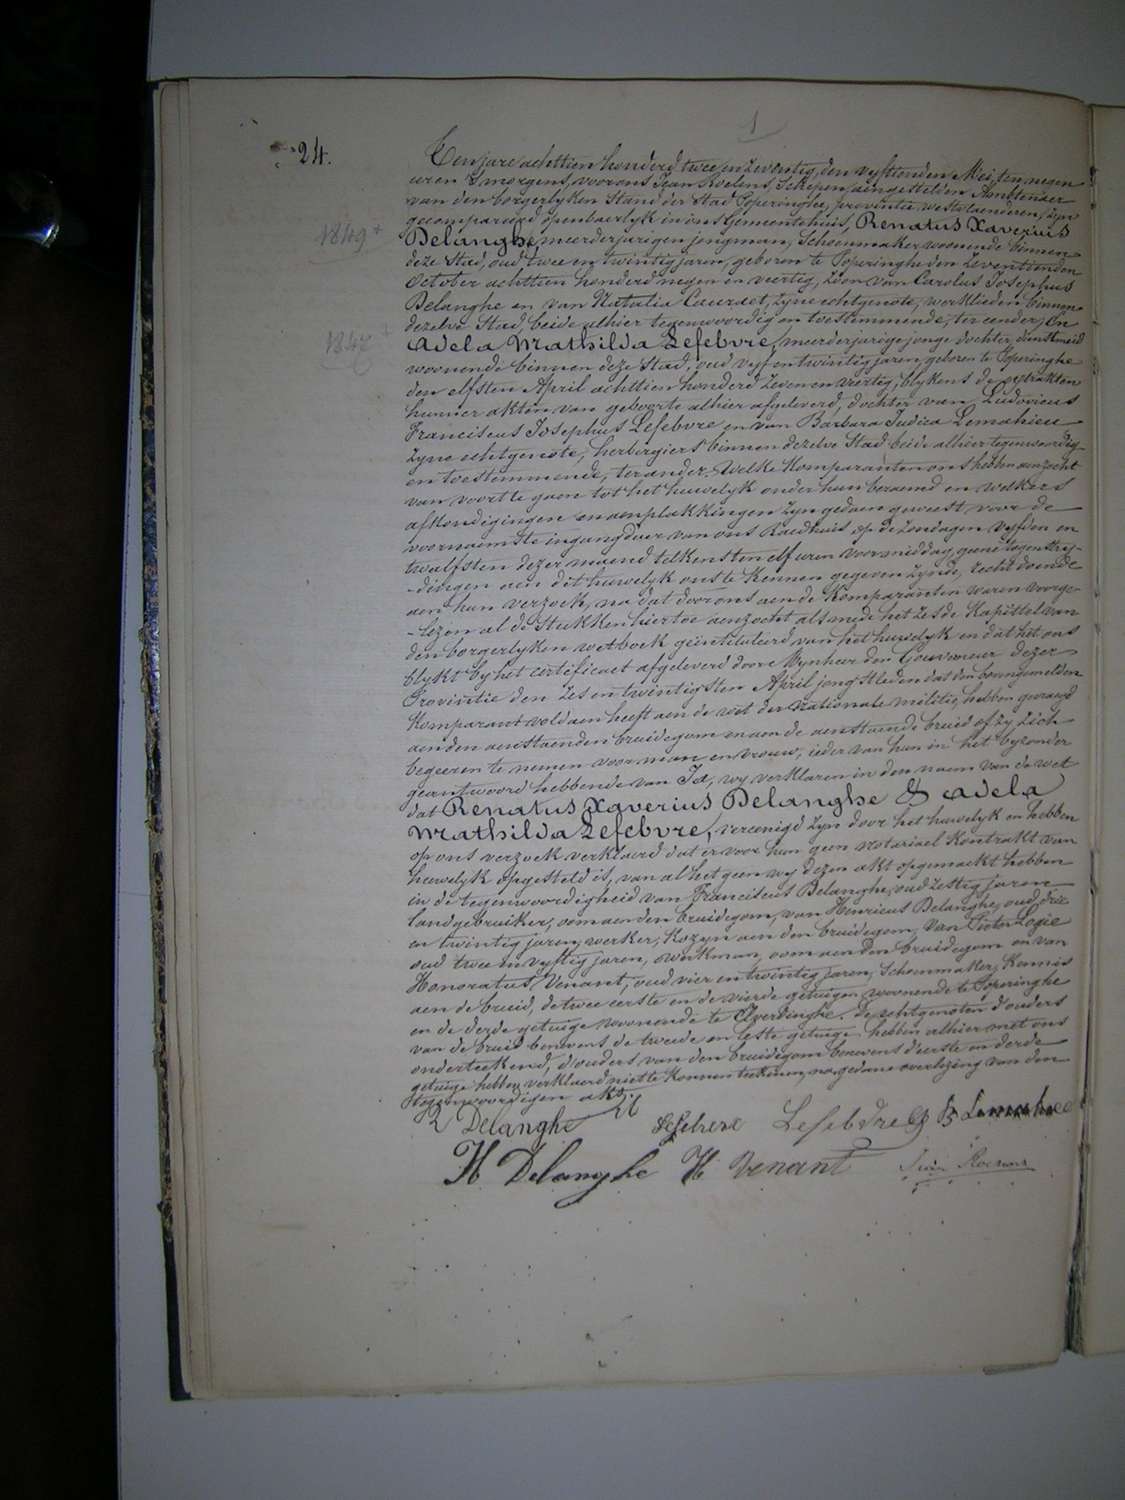 1
24.
Ten jare achttien honderd twee en zeventig, den vyftienden Mei, ten negen
uren 's morgens, voor ons Jean Roelens, Schepen, aengestelden Ambtenaer
van den borgerlyken Stand der Stad Poperinghe, provintie westvlaenderen, zyn
gecompareerd openbaerlyk in ons Gemeentehuis, Renatus Xaverius
1849+
Delanghe, meerderjarigen jongman, Schoenmaker woonende binnen
deze Stad, oud twee en twintig jaren, geboren te Poperinghe den Zeventienden
October achttien honderd negen en veertig, Zoon van Carolus Josephus
Delanghe en van Natalia Cauraet, Zyne echtgenote, werklieden binnen
dezelve Stad, beide alhier tegenwoordig en toestemmende, ter eender; En
1847+
Adela Mathilda Lefebvre, meerderjarige jonge dochter, dienstmeid
woonende binnen deze Stad, oud vyf en twintig jaren, geboren te Poperinghe
den elfsten April achttien honderd Zeven en veertig, blykens de extrakten
hunner akten van geboorte alhier afgeleverd, dochter van Ludovicus
Franciscus Josephus Lefebvre en van Barbara Judica Lemahieu
Zyne echtgenote, herbergiers binnen dezelve Stad beide alhier tegenwoordig
en toestemmende, ter ander. Welke Komparanten ons hebben aenzocht
van voort te gaen tot het huwelyk onder hun beraemd en welkers
afkondigingen en aenplakkingen Zyn gedaen geweest voor de
voornaemste ingangdeur van ons Raedhuis op de Zondagen vyfden en
twalfsten dezer maend telkens ten elf uren voormiddag, geene tegenstry-
-dingen aen dit huwelyk ons te Kennen gegeven Zynde, recht doende
aen hun verzoek, na dat door ons aen de Komparanten waren voorge-
-lezen al de Stukken hiertoe aenzocht alsmede het Zesde Kapittel van
den borgerlyken wetboek geintituleerd van het huwelyk en dat het ons
blykt by het certificaet afgeleverd door Mynheer den Gouverneur dezer
Provintie den Zes en twintigsten April jongstleden dat den bovengemelden
Komparant voldaen heeft aen de wet der Nationale militie, hebben gevraegd
aen den aenstaenden bruidegom en aen de aenstaende bruid of Zy Zich
begeeren te nemen voor man en vrouw, ieder van hun in het byzonder
geantwoord hebbende van Ja, wy verklaren in den naem van de wet
dat Renatus Xaverius Delanghe & Adela
Mathilda Lefebvre, vereenigd Zyn door het huwelyk en hebben
op ons verzoek verklaerd dat er voor hun geen notariael Kontrakt van
huwelyk opgesteld is, van al het geen wy dezen akt opgemaekt hebben
in de tegenwoordigheid van Franciscus Delanghe, oud Zestig jaren
landgebruiker, oom aen den bruidegom, van Henricus Delanghe, oud drie
en twintig jaren, werker, Kozyn aen den bruidegom, van Pieter Logie
oud twee en vyftig jaren, werkman, oom aen den bruidegom en van
Honoratus Venant, oud vier en twintig jaren, Schoenmaker, Kennis
aen de bruid, de twee eerste en de vierde getuigen woonende te Poperinghe
en de derde getuige woonende te Elverdinghe. De echtgenoten d'ouders
van de bruid benevens de tweede en leste getuige hebben alhier met ons
onderteekend, d'ouders van den bruidegom benevens d'eerste en derde
getuige hebben verklaerd niet te Konnen teekenen, na gedane overlezing van den
tegenwoordigen akt.
Delanghe Lefebvre Lefebvre B Lemahieu
H Delanghe H Venant Jean Roelens